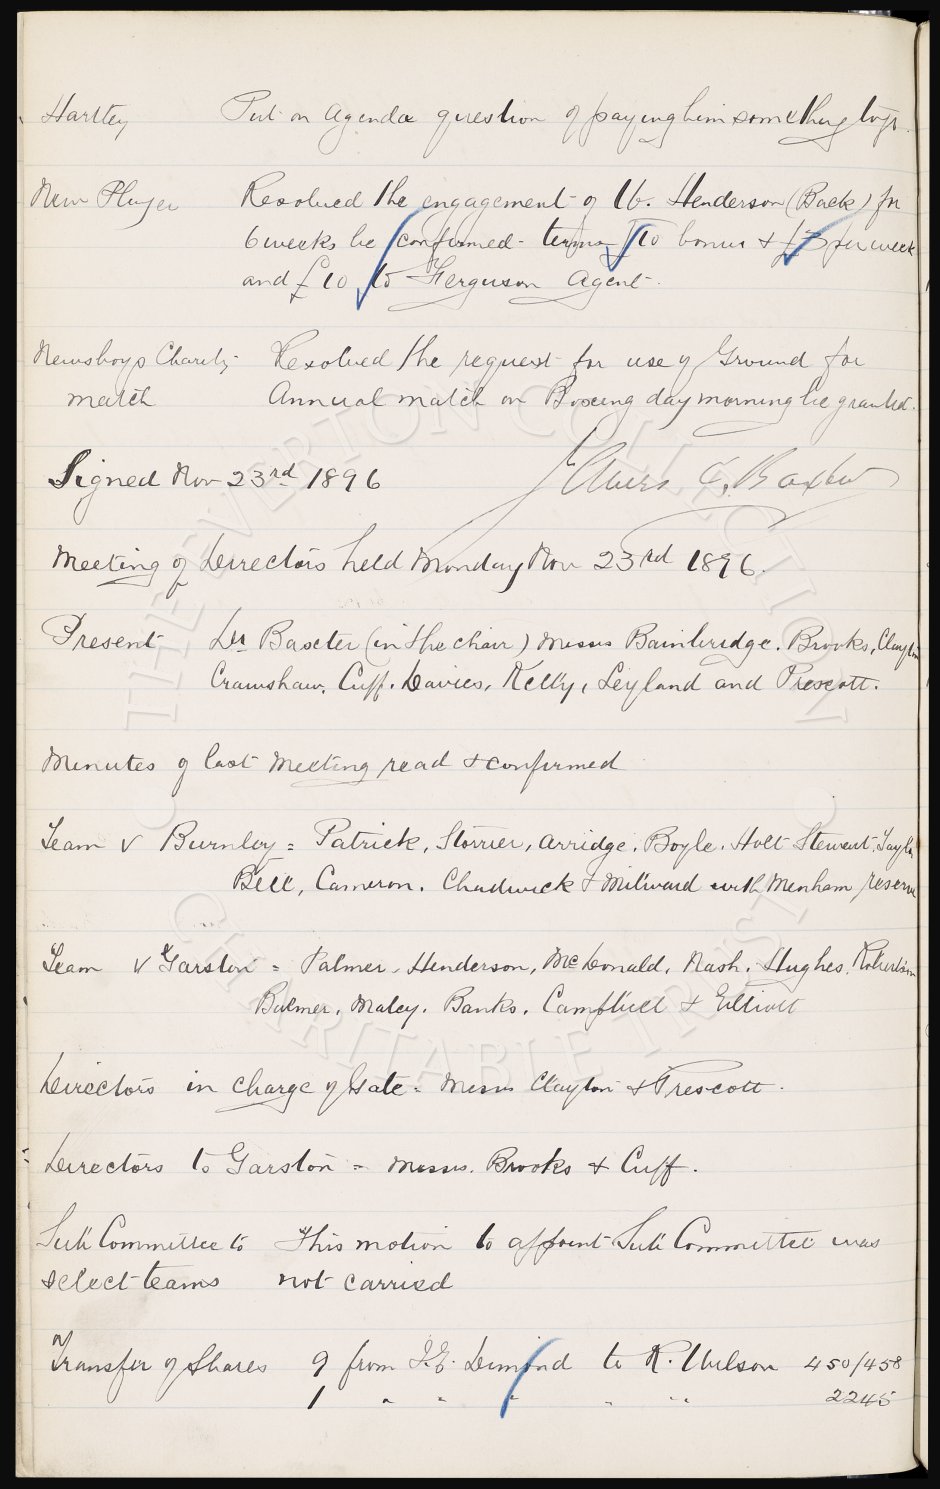 Hartley Put on Agenda question of paying him something
New Player Resolved the engagement of W. Henderson (Back) for
6 weeks be confirmed - terms £10 bonus & £3 per week
and £10 to Ferguson Agent.
Newsboys Charity Resolved the request for use of Ground for
match Annual match on Boxing day morning be granted.
Signed Nov 23rd 1896 James C. Baxter
Meeting of Directors held Monday Nov 23rd 1896.
Present Dr Baxter (in the chair) Messrs Bainbridge. Brooks, Clayton
Cramshaw. Cuff. Davies, Kelly, Leyland and Prescott.
Minutes of last meeting read & confirmed
Team v Burnley = Patrick, Storrier, Arridge. Boyle. Holt Stewart, Taylor
Bell, Cameron. Chadwick & Milward with Menham reserve
Team v Garston = Palmer, Henderson, McDonald, Nash. Hughes. Robertson
Balmer, Maley. Banks. Campbell & Elliott
Directors in charge of Gate = Messrs Clayton & Prescott.
Directors to Garston = Messrs. Brooks & Cuff.
Sub Committee to This motion to appoint Sub Committee was
select teams not carried
Transfer of Shares 9 from J.E. Dimond to R. Wilson 450/458
1 " " " " " 2245
THE EVERTON COLLECTION
CHARITABLE TRUST